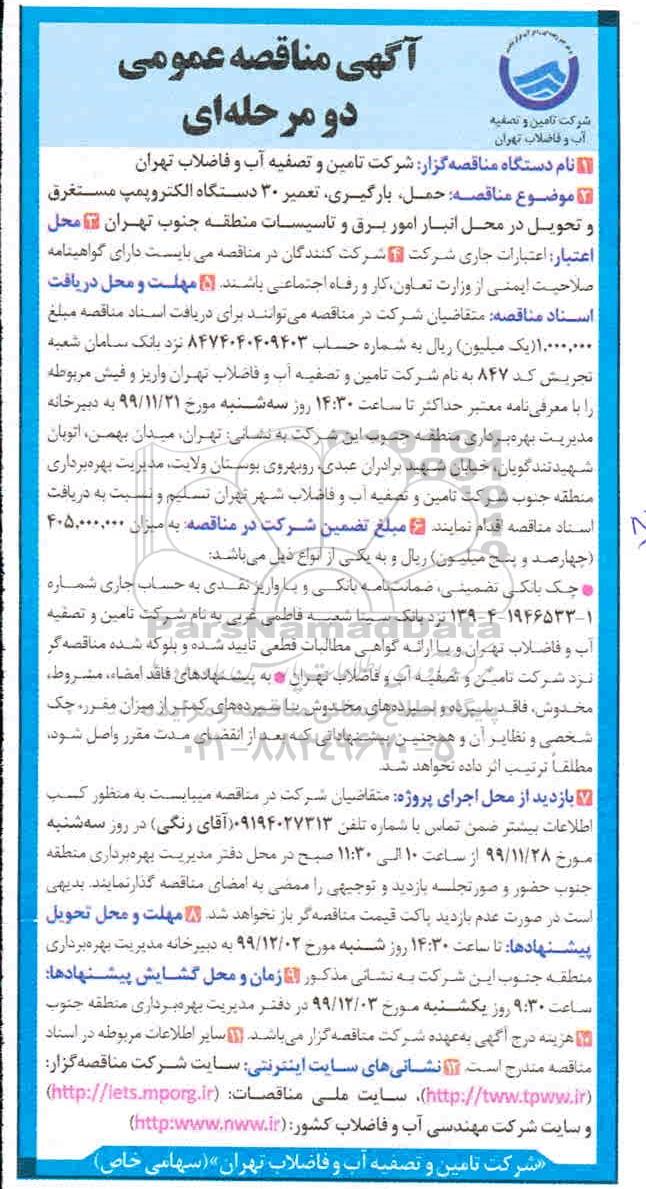 آگهی مناقصه عمومی
دو مرحله‌ای
شرکت تامین و تصفیه
آب و فاضلاب تهران
۱ نام دستگاه مناقصه‌گزار: شرکت تامین و تصفیه آب و فاضلاب تهران
۲ موضوع مناقصه: حمل، بارگیری، تعمیر ۳۰ دستگاه الکتروپمپ مستغرق
و تحویل در محل انبار امور برق و تاسیسات منطقه جنوب تهران ۳ محل
اعتبار: اعتبارات جاری شرکت ۴ شرکت کنندگان در مناقصه می بایست دارای گواهینامه
صلاحیت ایمنی از وزارت تعاون،کار و رفاه اجتماعی باشند. ۵ مهلت و محل دریافت
اسناد مناقصه: متقاضیان شرکت در مناقصه می‌توانند برای دریافت اسناد مناقصه مبلغ
۱.۰۰۰,۰۰۰(یک میلیون) ریال به شماره حساب ۸۴۷۴۰۴۰۴۰۹۴۰۳ نزد بانک سامان شعبه
تجریش کد ۸۴۷ به نام شرکت تامین و تصفیه آب و فاضلاب تهران واریز و فیش مربوطه
را با معرفی‌نامه معتبر حداکثر تا ساعت ۱۴:۳۰ روز سه‌شنبه مورخ ۹۹/۱۱/۲۱ به دبیرخانه
مدیریت بهره‌برداری منطقه جنوب این شرکت به نشانی: تهران، میدان بهمن، اتوبان
شهیدتندگویان، خیابان شهید برادران عبدی، روبهروی بوستان ولایت، مدیریت بهره‌برداری
منطقه جنوب شرکت تامین و تصفیه آب و فاضلاب شهر تهران تسلیم و نسبت به دریافت
اسناد مناقصه اقدام نمایند. ۶ مبلغ تضمین شرکت در مناقصه: به میزان ۴۰۵,۰۰۰,۰۰۰
(چهارصد و پنج میلیون) ریال و به یکی از انواع ذیل می‌باشد:
● چک بانکی تضمینی، ضمانت‌نامه بانکی و یا واریز نقدی به حساب جاری شماره
۱-۱۹۴۶۵۳۳-۴-۱۳۹ نزد بانک سینا شعبه فاطمی غربی به نام شرکت تامین و تصفیه
آب و فاضلاب تهران و یا ارائه گواهی مطالبات قطعی تایید شده و بلوکه شده مناقصه‌گر
نزد شرکت تامین و تصفیه آب و فاضلاب تهران ● به پیشنهادهای فاقد امضاء، مشروط،
مخدوش، فاقد سپرده و سپرده‌های مخدوش یا سپرده‌های کمتر از میزان مقرر، چک
شخصی و نظایر آن و همچنین پیشنهاداتی که بعد از انقضای مدت مقرر واصل شود،
مطلقاً ترتیب اثر داده نخواهد شد.
۷ بازدید از محل اجرای پروژه: متقاضیان شرکت در مناقصه میبایست به منظور کسب
اطلاعات بیشتر ضمن تماس با شماره تلفن ۰۹۱۹۴۰۲۷۳۱۳(آقای رنگی) در روز سه‌شنبه
مورخ ۹۹/۱۱/۲۸ از ساعت ۱۰ الی ۱۱:۳۰ صبح در محل دفتر مدیریت بهره‌برداری منطقه
جنوب حضور و صورتجلسه بازدید و توجیهی را ممضی به امضای مناقصه گذارنمایند. بدیهی
است در صورت عدم بازدید پاکت قیمت مناقصه‌گر باز نخواهد شد. ۸ مهلت و محل تحویل
پیشنهادها: تا ساعت ۱۴:۳۰ روز شنبه مورخ ۹۹/۱۲/۰۲ به دبیرخانه مدیریت بهره‌برداری
منطقه جنوب این شرکت به نشانی مذکور ۹ زمان و محل گشایش پیشنهادها:
ساعت ۹:۳۰ روز یکشنبه مورخ ۹۹/۱۲/۰۳ در دفتر مدیریت بهره‌برداری منطقه جنوب
۱۰ هزینه درج آگهی به‌عهده شرکت مناقصه‌گزار می‌باشد. ۱۱ سایر اطلاعات مربوطه در اسناد
مناقصه مندرج است. ۱۲ نشانی‌های سایت اینترنتی: سایت شرکت مناقصه‌گزار:
(http://tww.tpww.ir)، سایت ملی مناقصات: (http://iets.mporg.ir)
و سایت شرکت مهندسی آب و فاضلاب کشور: (http:www.nww.ir)
«شرکت تامین و تصفیه آب و فاضلاب تهران»(سهامی خاص)
ParsNamadData
پایگاه اطلاع رسانی مناقصه و مزایده
۰۲۱-۸۸۳۴۹۶۷۰-۵